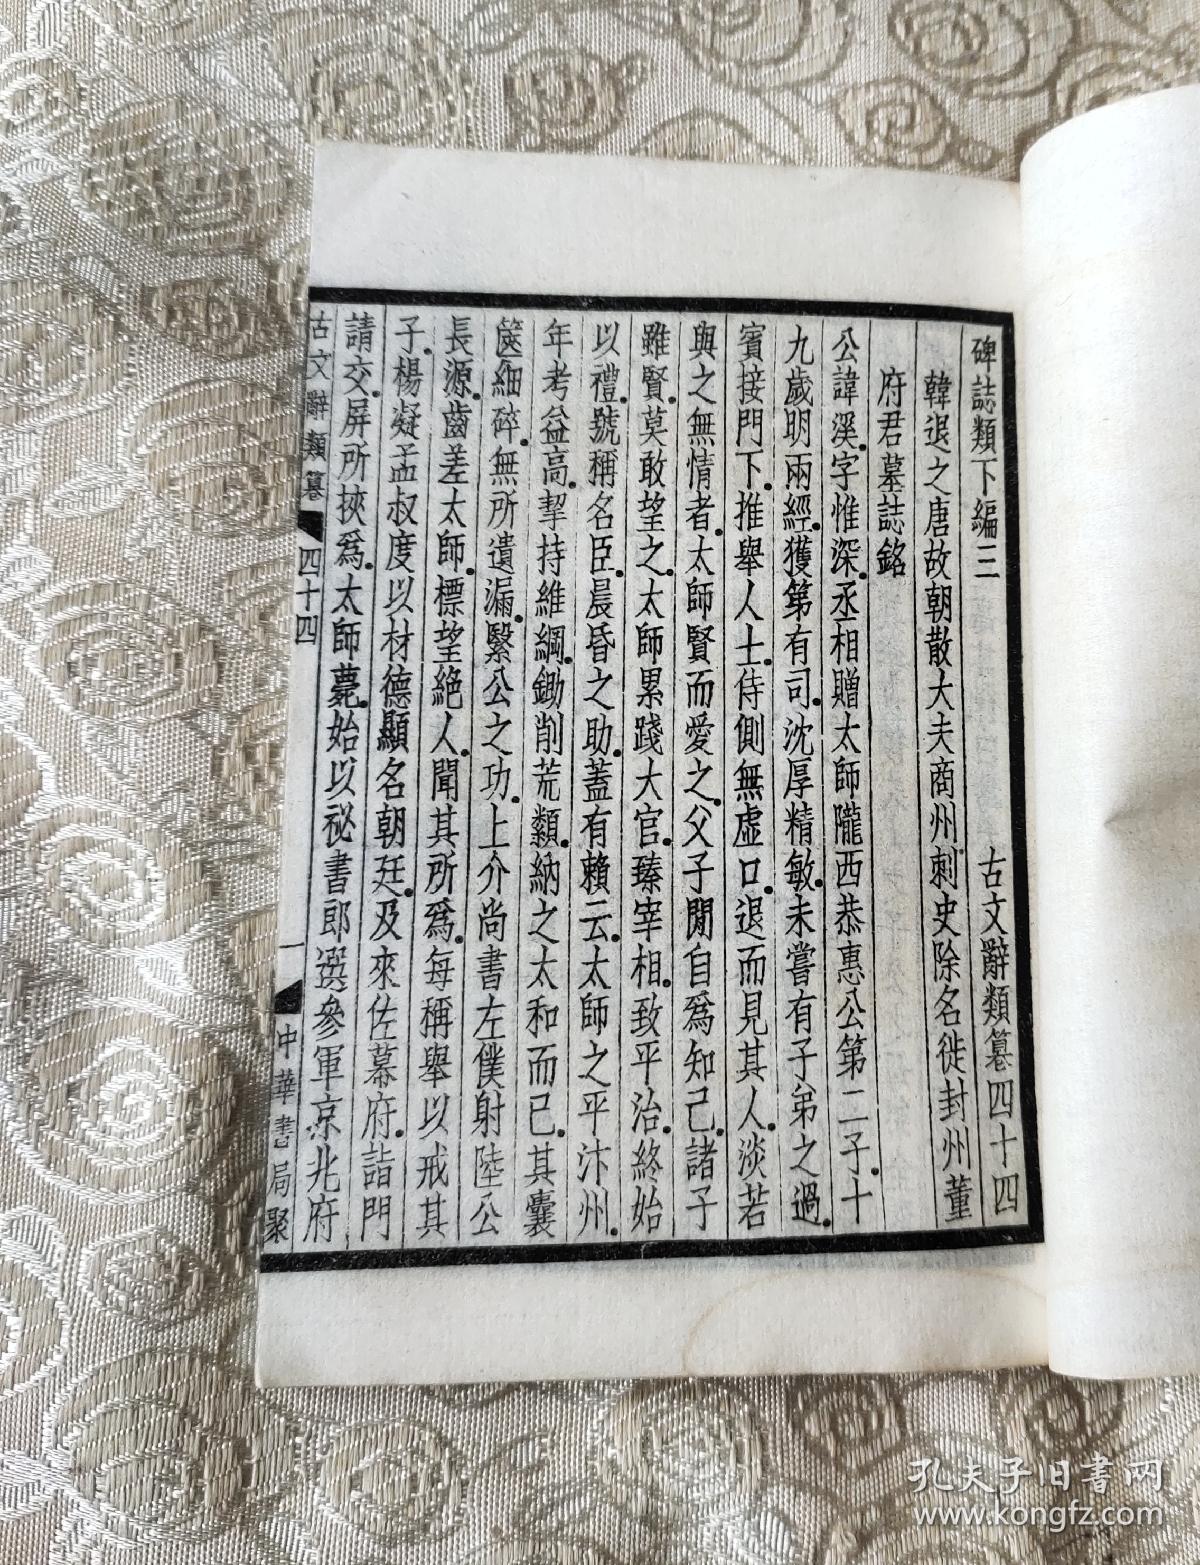 碑誌類下編三　古文辭類篹四十四
韓退之唐故朝散大夫商州刺史除名徙封州董
府君墓誌銘
公諱溪。字惟深。丞相贈太師隴西恭惠公第二子。十
九歲明兩經。獲第有司。沈厚精敏。未嘗有子弟之過。
賓接門下。推舉人士。侍側無虛口。退而見其人。淡若
與之無情者。太師賢而愛之。父子閒自爲知己。諸子
雖賢。莫敢望之。太師累踐大官。臻宰相。致平治。終始
以禮。號稱名臣。晨昏之助。蓋有賴云。太師之平汴州。
年考益高。挈持維綱。鋤削荒纇。納之太和而已。其囊
篋細碎。無所遺漏。繄公之功。上介尚書左僕射陸公
長源。齒差太師。標望絕人。聞其所爲。每稱舉以戒其
子。楊凝孟叔度以材德顯名朝廷。及來佐幕府。詣門
請交。屏所挾爲。太師薨。始以祕書郎選參軍京兆府
古文辭類篹　四十四　一　中華書局聚
孔夫子旧書网
www.kongfz.com